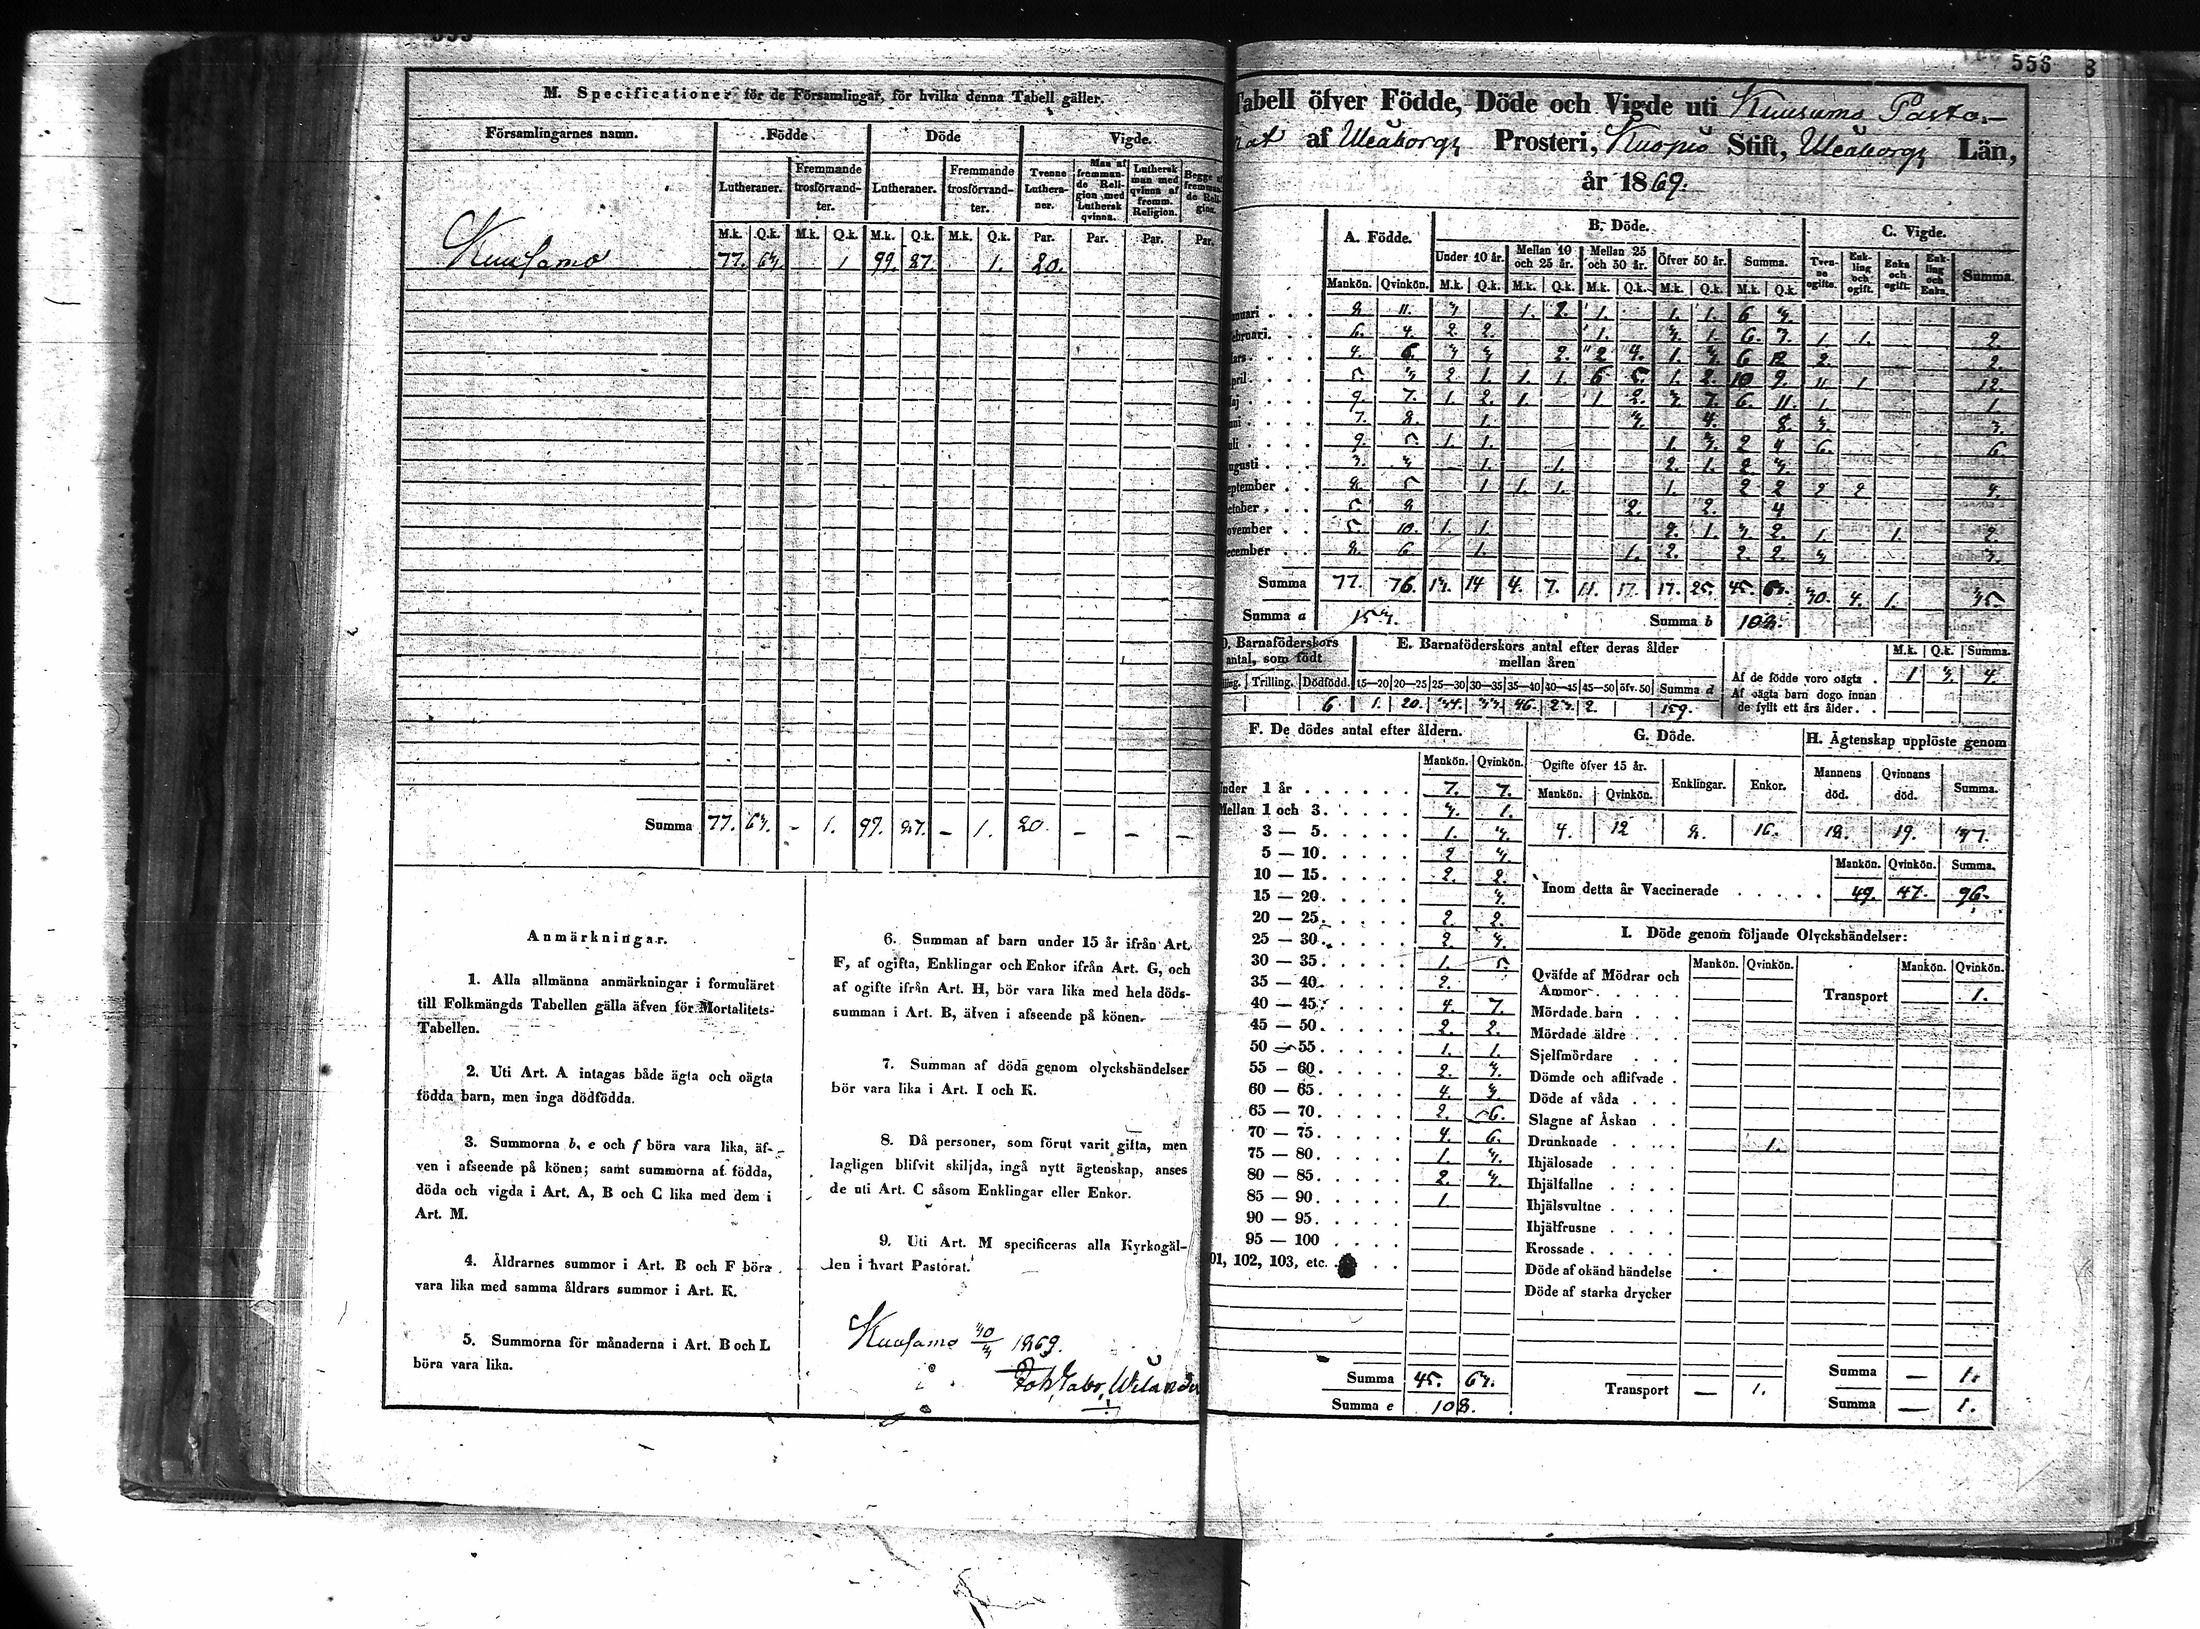 M. Specificationer för de Församlingar, för hvilka denna Tabell gäller.
Församlingarnes namn. Födde. Döde Vigde.
Lutheraner. Fremmande trosförvandter. Lutheraner. Fremmande trosförvandter. Tvenne Lutheraner. Man af fremmande Religion med Luthersk qvinna. Luthersk man med qvinna af fremm. Religion. Begge af fremmande Religion.
M.k. Q.k. M.k. Q.k. M.k. Q.k. M.k. Q.k. Par. Par. Par. Par.
Kuusamo 77. 63. 1 99. 87. 1. 20.
Summa 77. 63. - 1. 99. 87. - 1. 20. - - -
Anmärkningar.
1. Alla allmänna anmärkningar i formuläret
till Folkmängds Tabellen gälla äfven för Mortalitets-
Tabellen.
2. Uti Art. A intagas både ägta och oägta
födda barn, men inga dödfödda.
3. Summorna b, e och f böra vara lika, äf-
ven i afseende på könen; samt summorna af födda,
döda och vigda i Art. A, B och C lika med dem i
Art. M.
4. Åldrarnes summor i Art. B och F böra
vara lika med samma åldrars summor i Art. K.
5. Summorna för månaderna i Art. B och L
böra vara lika.
6. Summan af barn under 15 år ifrån Art.
F, af ogifta, Enklingar och Enkor ifrån Art. G, och
af ogifte ifrån Art. H, bör vara lika med hela döds-
summan i Art. B, äfven i afseende på könen.
7. Summan af döda genom olyckshändelser
bör vara lika i Art. I och K.
8. Då personer, som förut varit gifta, men
lagligen blifvit skiljda, ingå nytt ägtenskap, anses
de uti Art. C såsom Enklingar eller Enkor.
9. Uti Art. M specificeras alla Kyrkogäl-
den i hvart Pastorat.
Kuusamo 30/3 1869.
556
Tabell öfver Födde, Döde och Vigde uti Kuusamo Pasto-
rat af Uleåborgs Prosteri, Kuopio Stift, Uleåborgs Län,
år 1869.
A. Födde. B. Döde. C. Vigde.
Under 10 år. Mellan 10 och 25 år. Mellan 25 och 50 år. Öfver 50 år. Summa. Tvenne ogifte. Enkling och ogift. Enka och ogift. Enkling och Enka. Summa.
Mankön. Qvinkön. M.k. Q.k. M.k. Q.k. M.k. Q.k. M.k. Q.k. M.k. Q.k.
nuari 8. 11. 3. 1. 2. 1. 1. 1. 6 3.
ebruari. 6. 4. 2. 2. 1. 3. 1. 6. 7. 1. 1. 2.
ars 4. 6. 3 3. 2. 2 4. 1. 3. 6 12 2. 2.
pril 5. 3 2. 1. 1. 1. 6 5. 1. 2. 10 9. 11 1 12.
aj 9. 7. 1. 2. 1. 1. 2. 3. 7. 6. 11. 1. 1.
ni 7. 8. 1. 3. 4. 8. 3. 3.
li 9. 5. 1. 1. 1. 3. 2 4 6. 6.
ugusti 3. 3. 1. 1. 2. 1. 2. 3.
eptember 8. 5 1 1. 1. 1. 2 2 2 2 4.
ctober 5 8 2. 2. 4
ovember 5. 10. 1. 1. 2. 1. 3. 2. 1. 1. 2
ecember 8. 6 1. 1. 2. 2. 2. 3 3.
Summa 77. 76. 13. 14 4. 7. 11. 17. 17. 25. 45. 63. 30. 4. 1. 35.
Summa a 153. Summa b 108.
D. Barnaföderskors antal, som födt
lling. Trilling. Dödfödd.
6
E. Barnaföderskors antal efter deras ålder
mellan åren
15—20 20—25 25—30 30—35 35—40 40—45 45—50 öfv. 50 Summa d
1. 20. 34. 33. 46. 23. 2. 159.
M.k. Q.k. Summa.
Af de födde voro oägta 1 3. 4.
Af oägta barn dogo innan
de fyllt ett års ålder.
F. De dödes antal efter åldern.
Mankön. Qvinkön.
nder 1 år 7. 7.
Mellan 1 och 3. 3. 1.
3 — 5. 1. 3.
5 — 10. 2 3.
10 — 15. 2. 2.
15 — 20. 3.
20 — 25. 2. 2.
25 — 30. 2 3.
30 — 35. 1. 5.
35 — 40. 2.
40 — 45. 4 7.
45 — 50. 2. 2.
50 — 55. 1. 1.
55 — 60. 2. 3.
60 — 65. 4. 3.
65 — 70. 2. 6.
70 — 75. 4. 6.
75 — 80. 1. 3.
80 — 85. 2. 3.
85 — 90. 1.
90 — 95.
95 — 100
01, 102, 103, etc.
Summa 45. 63.
Summa e 108.
G. Döde.
Ogifte öfver 15 år. Enklingar. Enkor.
Mankön. Qvinkön.
4. 12 8. 16.
H. Ägtenskap upplöste genom
Mannens död. Qvinnans död. Summa.
18. 19. 37.
Mankön. Qvinkön. Summa.
Inom detta år Vaccinerade 49. 47. 96.
I. Döde genom följande Olyckshändelser:
Mankön. Qvinkön. Mankön. Qvinkön.
Qväfde af Mödrar och
Ammor
Transport 1.
Mördade barn
Mördade äldre
Sjelfmördare
Dömde och aflifvade
Döde af våda
Slagne af Åskan
Drunknade 1.
Ihjälosade
Ihjälfallne
Ihjälsvultne
Ihjälfrusne
Krossade
Döde af okänd händelse
Döde af starka drycker
Transport — 1.
Summa — 1.
Summa — 1.